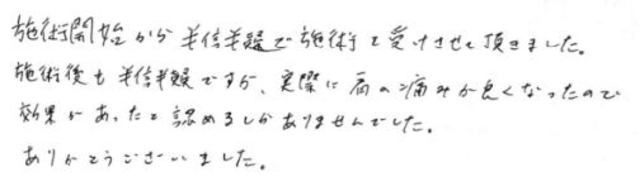 施術開始から半信半疑で施術を受けさせて頂きました。
施術後も半信半疑ですが、実際に肩の痛みが良くなったので
効果があったと認めるしかありませんでした。
ありがとうございました。